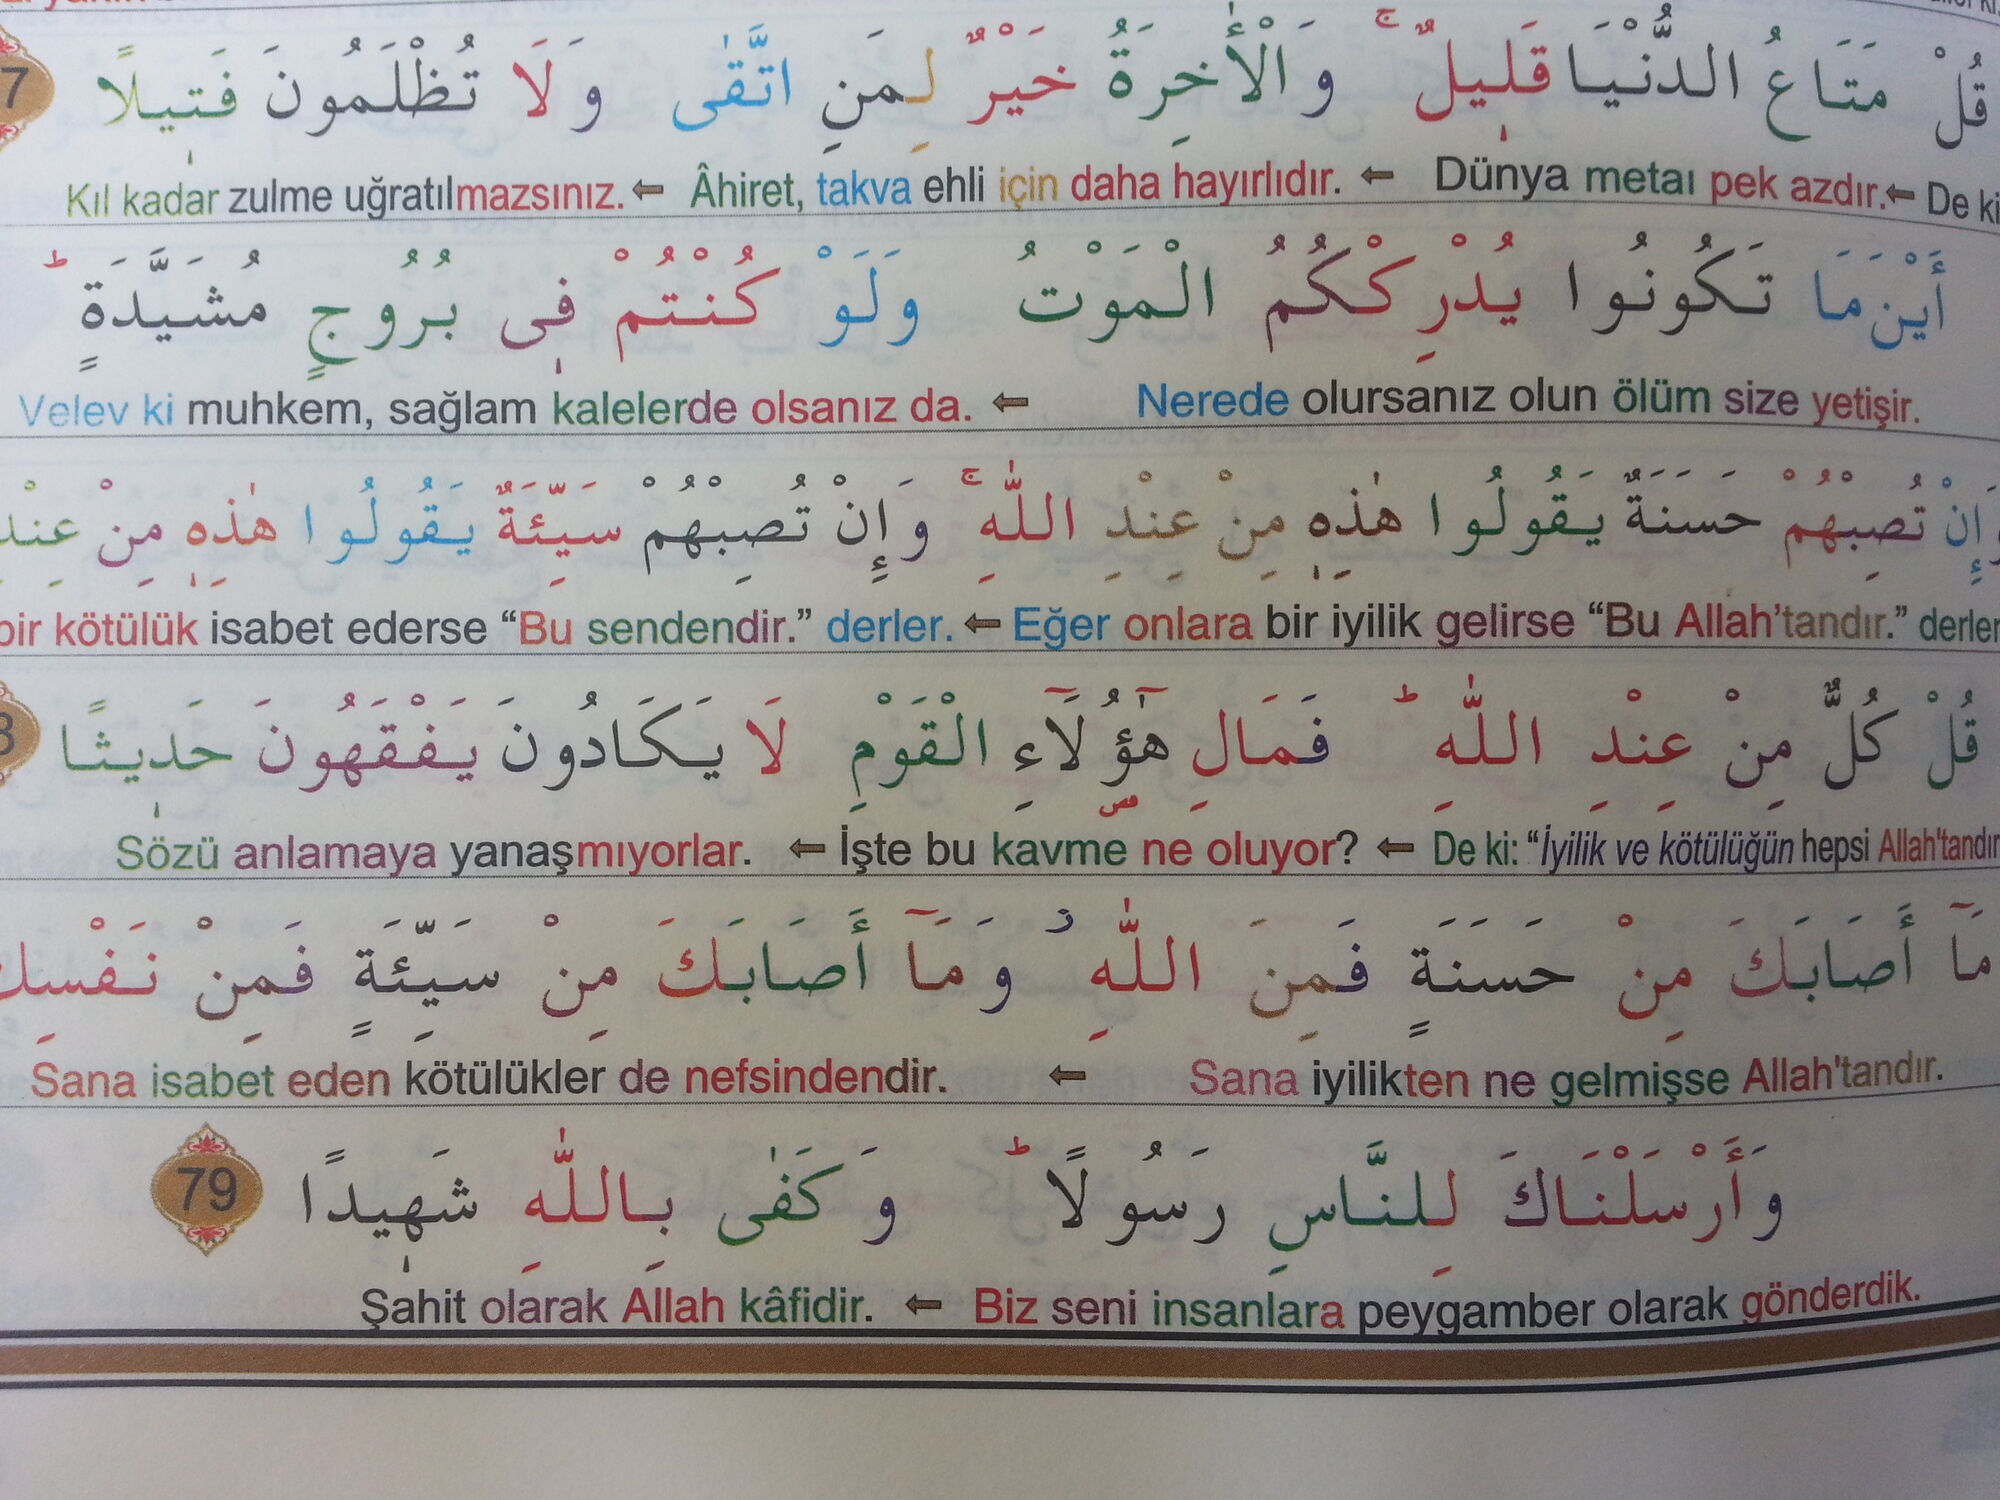 قُلْ مَتَاعُ الدُّنْيَا قَلِيلٌ ۚ وَالْاٰخِرَةُ خَيْرٌ لِمَنِ اتَّقٰى وَلَا تُظْلَمُونَ فَتِيلًا 7
De ki ← Dünya metaı pek azdır. ← Âhiret, takva ehli için daha hayırlıdır. ← Kıl kadar zulme uğratılmazsınız.
أَيْنَ مَا تَكُونُوا يُدْرِكْكُمُ الْمَوْتُ وَلَوْ كُنْتُمْ فِى بُرُوجٍ مُشَيَّدَةٍ ۜ
Nerede olursanız olun ölüm size yetişir. ← Velev ki muhkem, sağlam kalelerde olsanız da.
وَإِنْ تُصِبْهُمْ حَسَنَةٌ يَقُولُوا هٰذِهِ مِنْ عِنْدِ اللّٰهِ ۚ وَإِنْ تُصِبْهُمْ سَيِّئَةٌ يَقُولُوا هٰذِهِ مِنْ عِنْدِ
Eğer onlara bir iyilik gelirse “Bu Allah’tandır.” derler ← bir kötülük isabet ederse “Bu sendendir.” derler.
قُلْ كُلٌّ مِنْ عِنْدِ اللّٰهِ ط فَمَالِ هٰٓؤُلَٓاءِ الْقَوْمِ لَا يَكَادُونَ يَفْقَهُونَ حَدِيثًا 8
De ki: “İyilik ve kötülüğün hepsi Allah'tandır ← İşte bu kavme ne oluyor? ← Sözü anlamaya yanaşmıyorlar.
مَٓا أَصَابَكَ مِنْ حَسَنَةٍ فَمِنَ اللّٰهِ ز وَمَٓا أَصَابَكَ مِنْ سَيِّئَةٍ فَمِنْ نَفْسِكَ
Sana iyilikten ne gelmişse Allah'tandır. ← Sana isabet eden kötülükler de nefsindendir.
وَأَرْسَلْنَاكَ لِلنَّاسِ رَسُولًا ط وَكَفٰى بِاللّٰهِ شَهِيدًا 79
Biz seni insanlara peygamber olarak gönderdik. ← Şahit olarak Allah kâfidir.